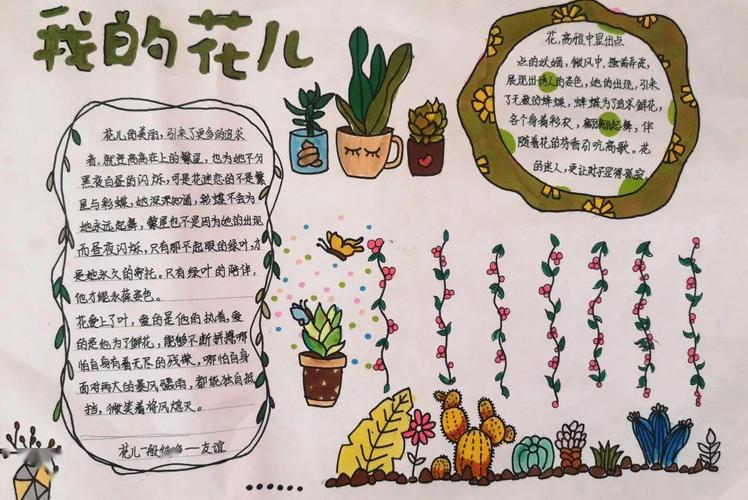 我的花儿
花儿的美丽，引来了更多的追求
者，就连高高在上的繁星，也为她不分
黑夜白昼的闪烁，可是花迷恋的不是繁
星与彩蝶，她深深知道，彩蝶不会为
她永远起舞，繁星也不是因为她的出现
而昼夜闪烁，只有那不起眼的绿叶，才
是她永久的寄托。只有绿叶的陪伴，
他才能永葆姿色。
花爱上了叶，爱的是他的执着，爱
的是他为了鲜花，能够不断拼搏哪
怕自身有着无尽的残缺，哪怕自身
面对再大的暴风骤雨，都能独自抵
挡，微笑着将风熄灭。
花儿一般的 友谊
花，高雅中显出点
点的妖娆，微风中，搔首弄姿，
展现出诱人的姿色，她的出现，引来
了无数的蜂蝶，蜂蝶为了追求鲜花，
各个身着彩衣，翩翩起舞，伴
随着花的芬香引吭高歌。花
的迷人，更让叶子显得孤寂。